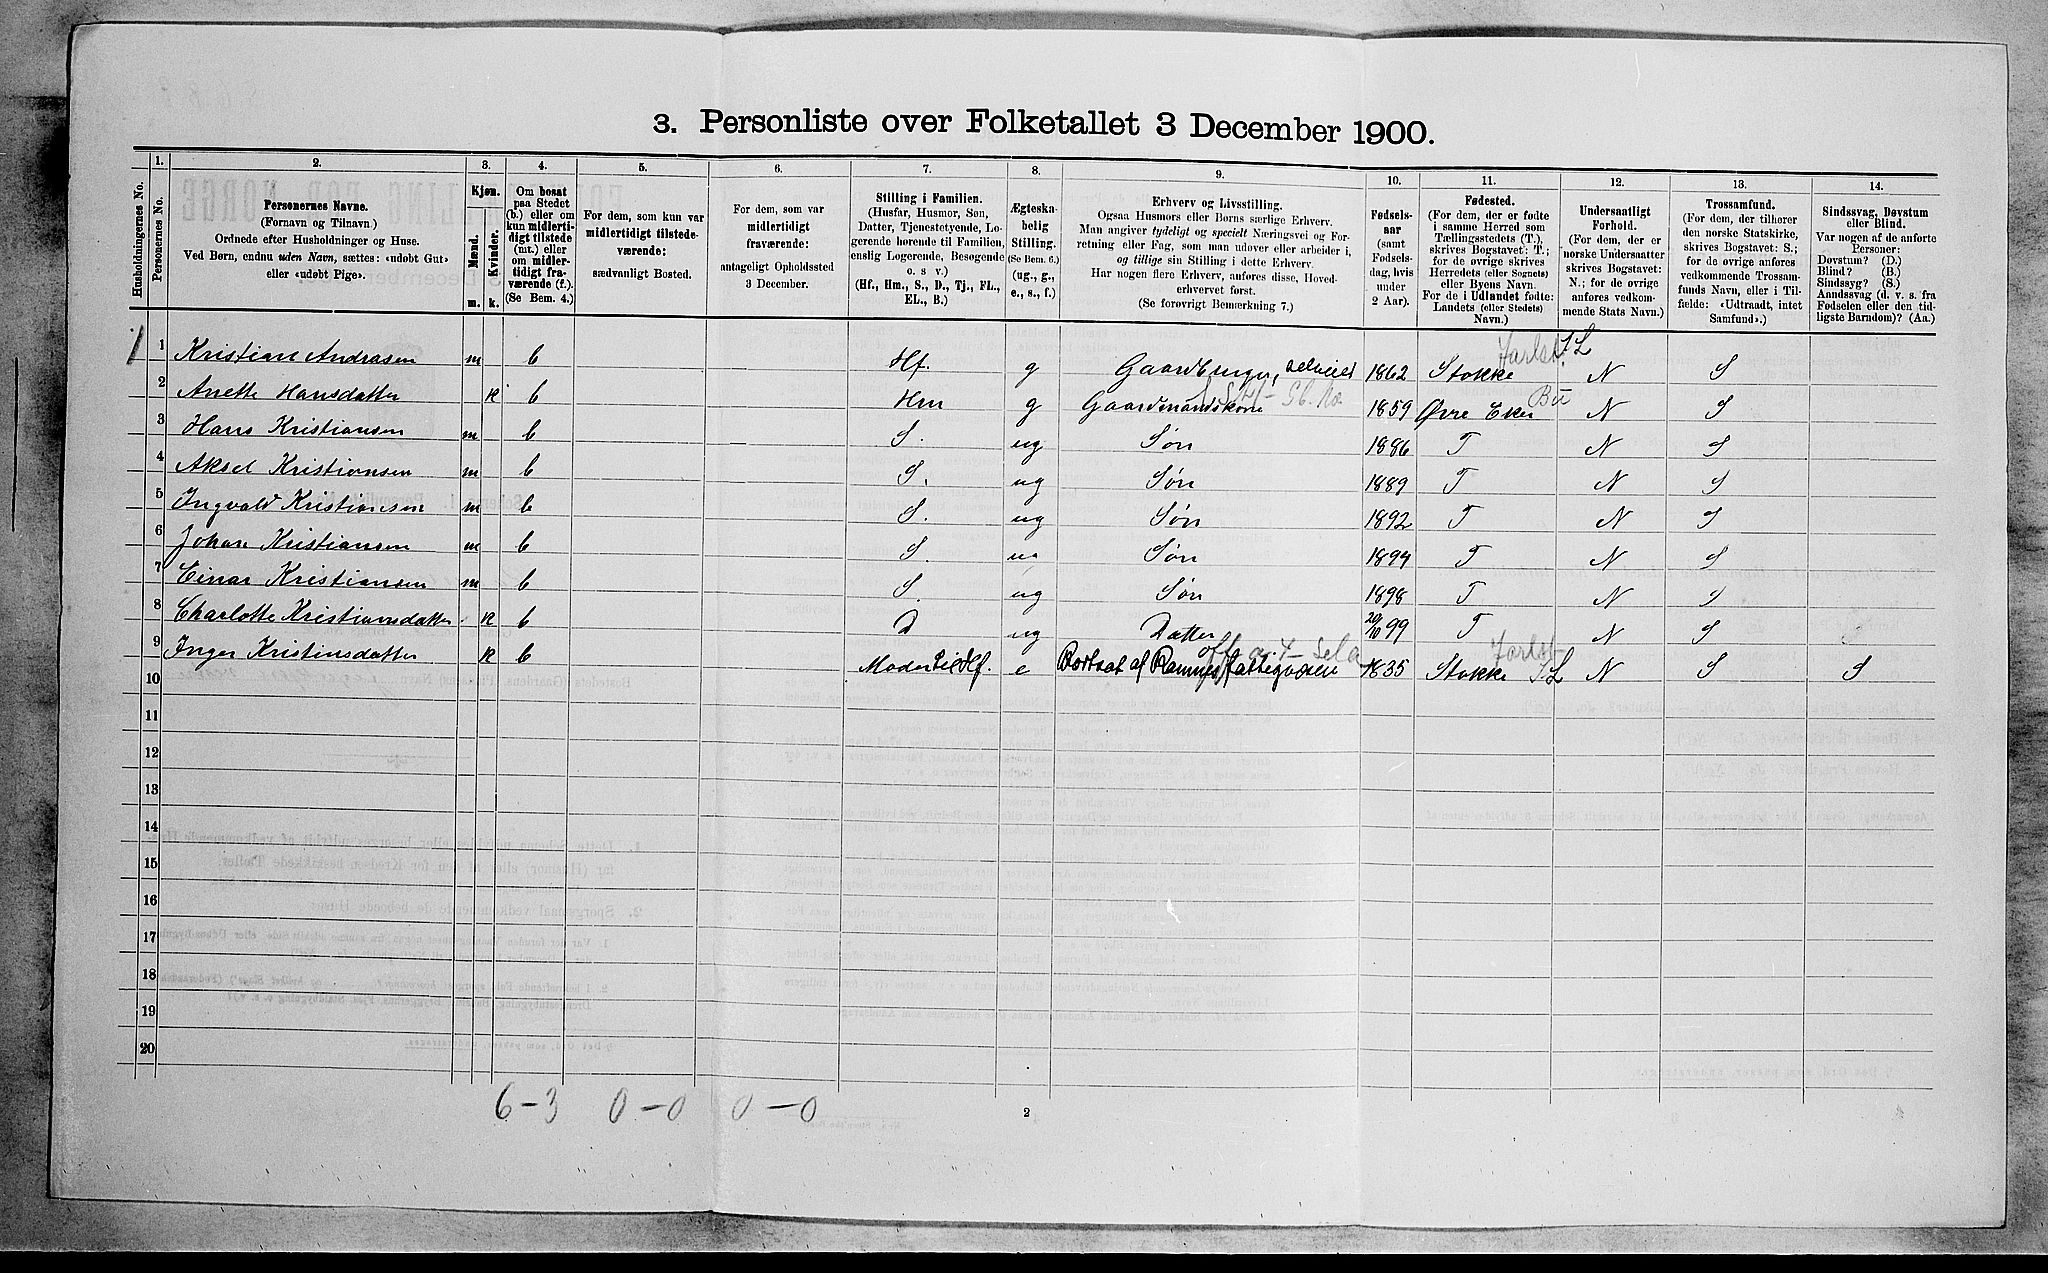 3. Personliste over Folketallet 3 December 1900.
Husholdningernes No.
1. Personernes No.
2. Personernes Navne.
(Fornavn og Tilnavn)
Ordnede efter Husholdninger og Huse.
Ved Børn, endnu uden Navn, sættes: «udøbt Gut»
eller «udøbt Pige».
3. Kjøn.
Mænd. m.
Kvinder. k.
4. Om bosat
paa Stedet
(b.) eller om
kun midlerti-
digt tilstede
(mt.) eller
om midler-
tidigt fra-
værende (f.).
(Se Bem. 4.)
5. For dem, som kun var
midlertidigt tilstede-
værende:
sædvanligt Bosted.
6. For dem, som var
midlertidigt
fraværende:
antageligt Opholdssted
3 December.
7. Stilling i Familien.
(Husfar, Husmor, Søn,
Datter, Tjenestetyende, Lo-
gerende hørende til Familien,
enslig Logerende, Besøgende
o. s v.)
(Hf., Hm., S., D., Tj., FL.,
EL., B.)
8. Ægteska-
belig
Stilling.
(Se Bem. 6.)
(ug., g.,
e., s., f.)
9. Erhverv og Livsstilling.
Ogsaa Husmors eller Børns særlige Erhverv.
Man angiver tydeligt og specielt Næringsvei og For-
retning eller Fag, som man udøver eller arbeider i,
og tillige sin Stilling i dette Erhverv.
Har nogen flere Erhverv, anføres disse, Hoved-
erhvervet først.
(Se forøvrigt Bemærkning 7.)
10. Fødsels-
aar
(samt
Fødsels-
dag, hvis
under
2 Aar).
11. Fødested.
(For dem, der er fødte
i samme Herred som
Tællingsstedets (T.),
skrives Bogstavet: T.;
for de øvrige skrives
Herredets (eller Sognets)
eller Byens Navn.
For de i Udlandet fødte:
Landets (eller Stedets)
Navn.)
12. Undersaatligt
Forhold.
(For dem, der er
norske Undersaatter
skrives Bogstavet:
N.; for de øvrige
anføres vedkom-
mende Stats Navn.)
13. Trossamfund.
(For dem, der tilhører
den norske Statskirke,
skrives Bogstavet: S.;
for de øvrige anføres
vedkommende Trossam-
funds Navn, eller i Til-
fælde: «Udtraadt, intet
Samfund».)
14. Sindssvag, Døvstum
eller Blind.
Var nogen af de anførte
Personer:
Døvstum? (D.)
Blind? (B.)
Sindssyg? (S.)
Aandssvag (d. v. s. fra
Fødselen eller den tid-
ligste Barndom)? (Aa.)
1 1 Kristian Andrasen m b Hf. g Gaardbruger, selveier 1862 Stokke Jarlsb. N S
2 Anette Hansdatter k b Hm g Gaardmandskone 1859 Øvre Eker Bu N S
3 Hans Kristiansen m b S. ug Søn 1886 T N S
4 Aksel Kristiansen m b S. ug Søn 1889 T N S
5 Ingvald Kristiansen m b S. ug Søn 1892 T N S
6 Johan Kristiansen m b S. ug Søn 1894 T N S
7 Einar Kristiansen m b S. ug Søn 1898 T N S
8 Charlotte Kristiansdatter k b D ug Datter 20/10 99 T N S
9 Inger Kristinsdatter k b Moder til Hf. e Bortsat af Ramnes Fattigvæsen 1835 Stokke N S S
10
11
12
13
14
15
16
17
18
19
20
6–3 0–0 0–0
2